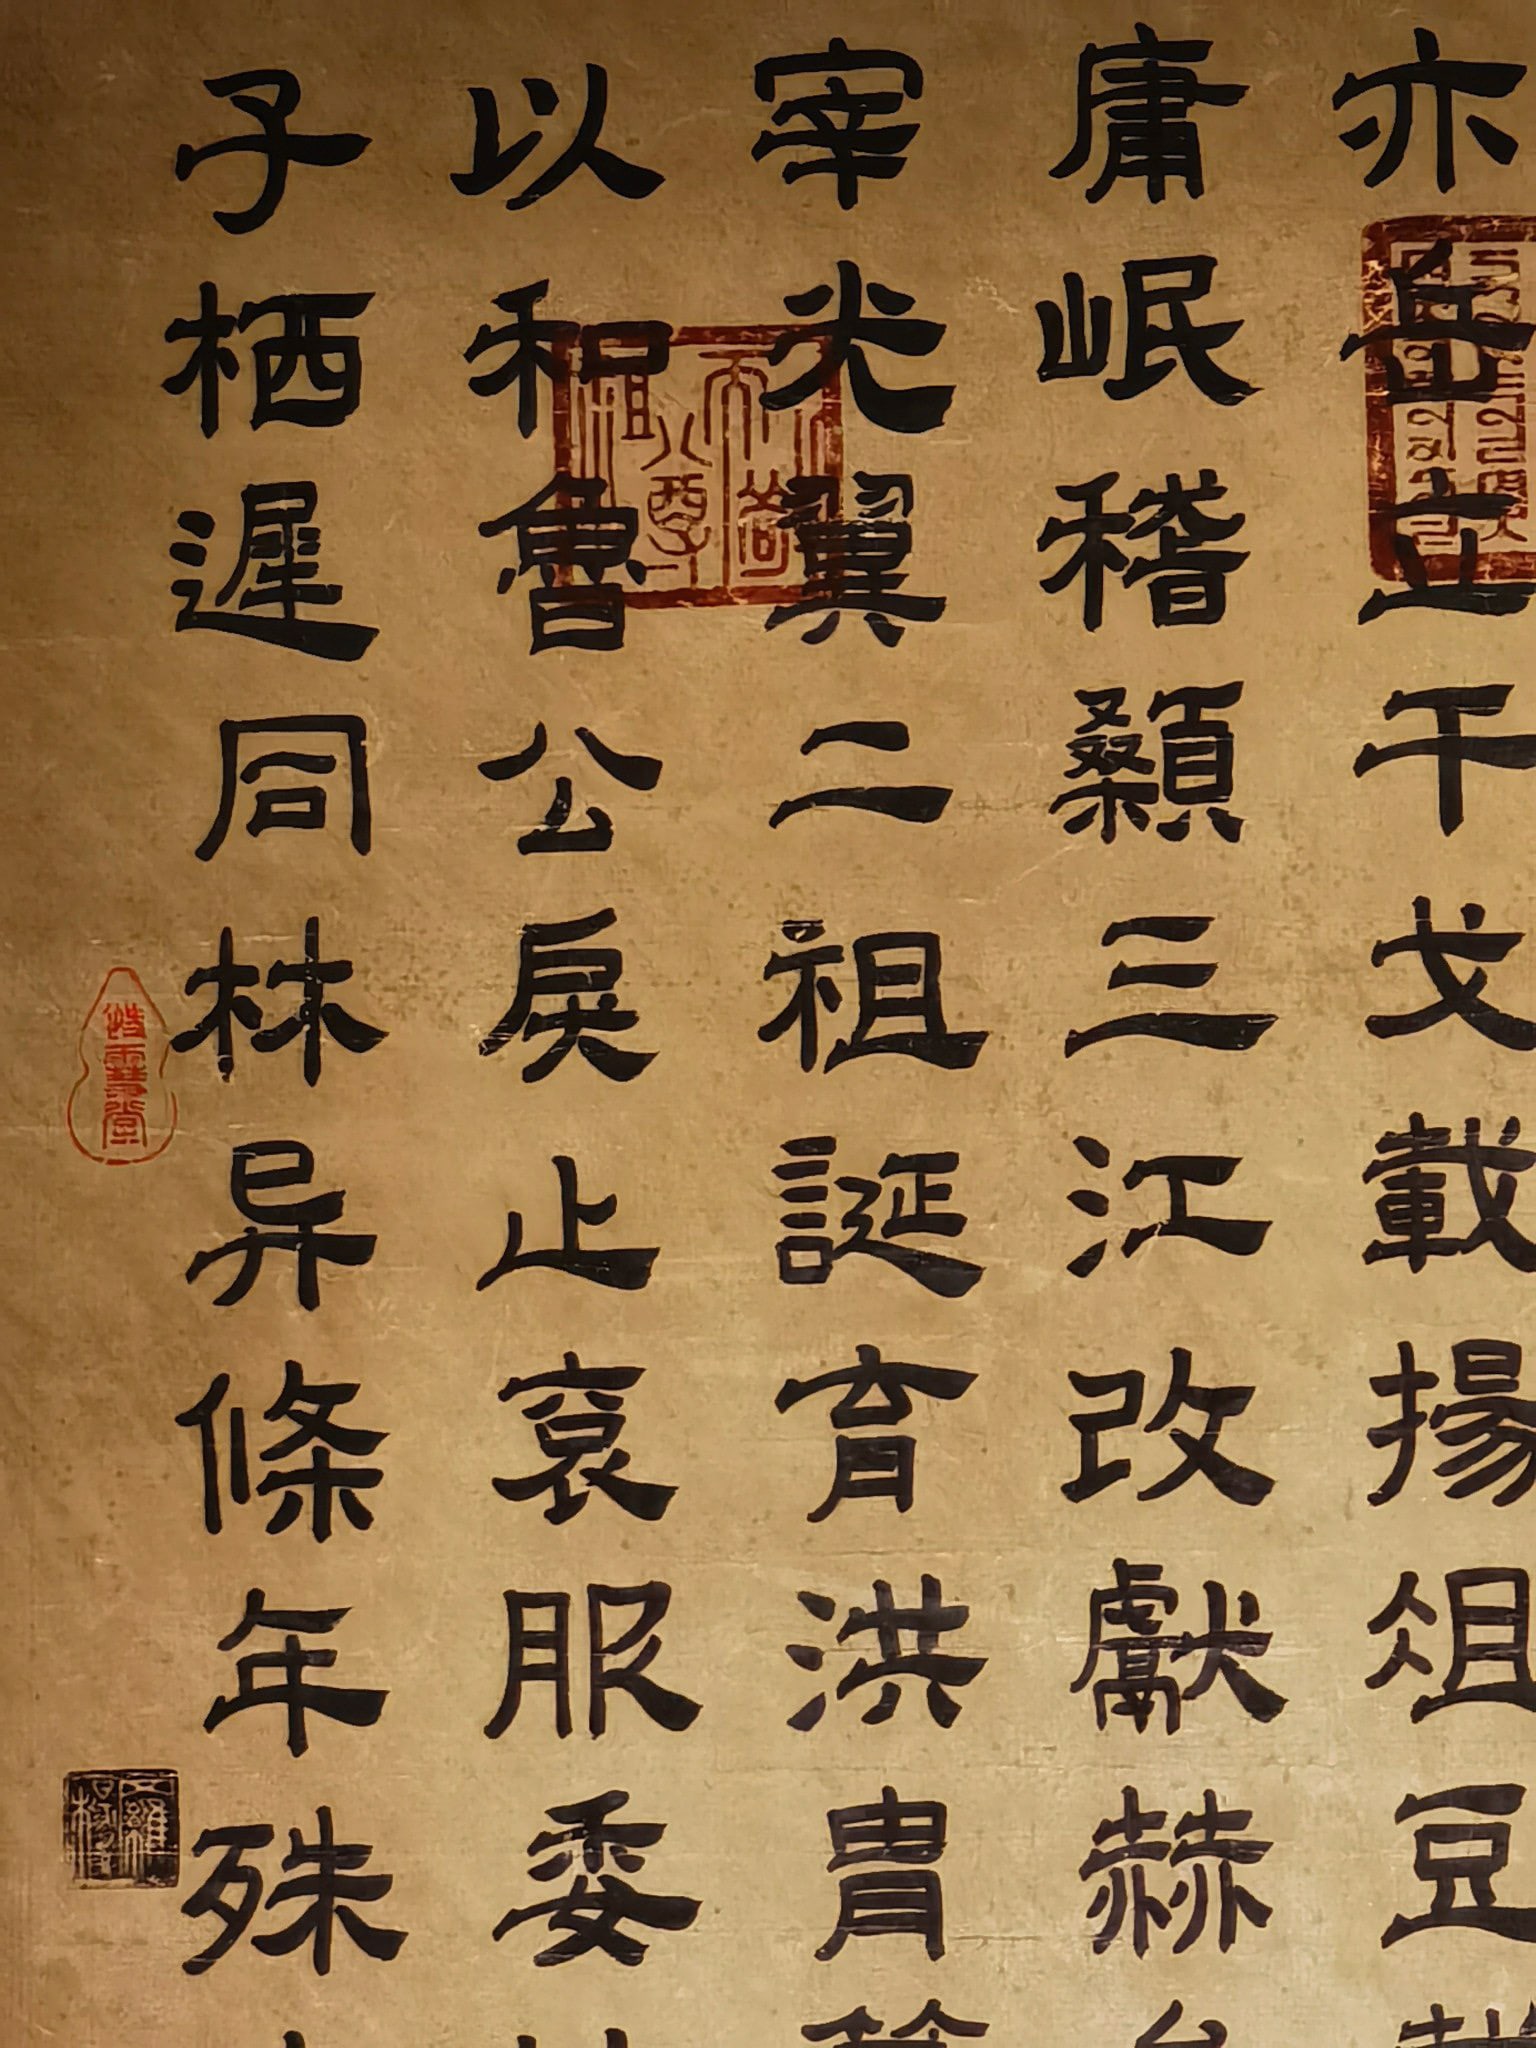 亦岳立干戈載揚俎豆
庸岷稽顙三江改獻赫
宰光翼二祖誕育洪胄
以和魯公戾止袞服委
子栖遲同林异條年殊